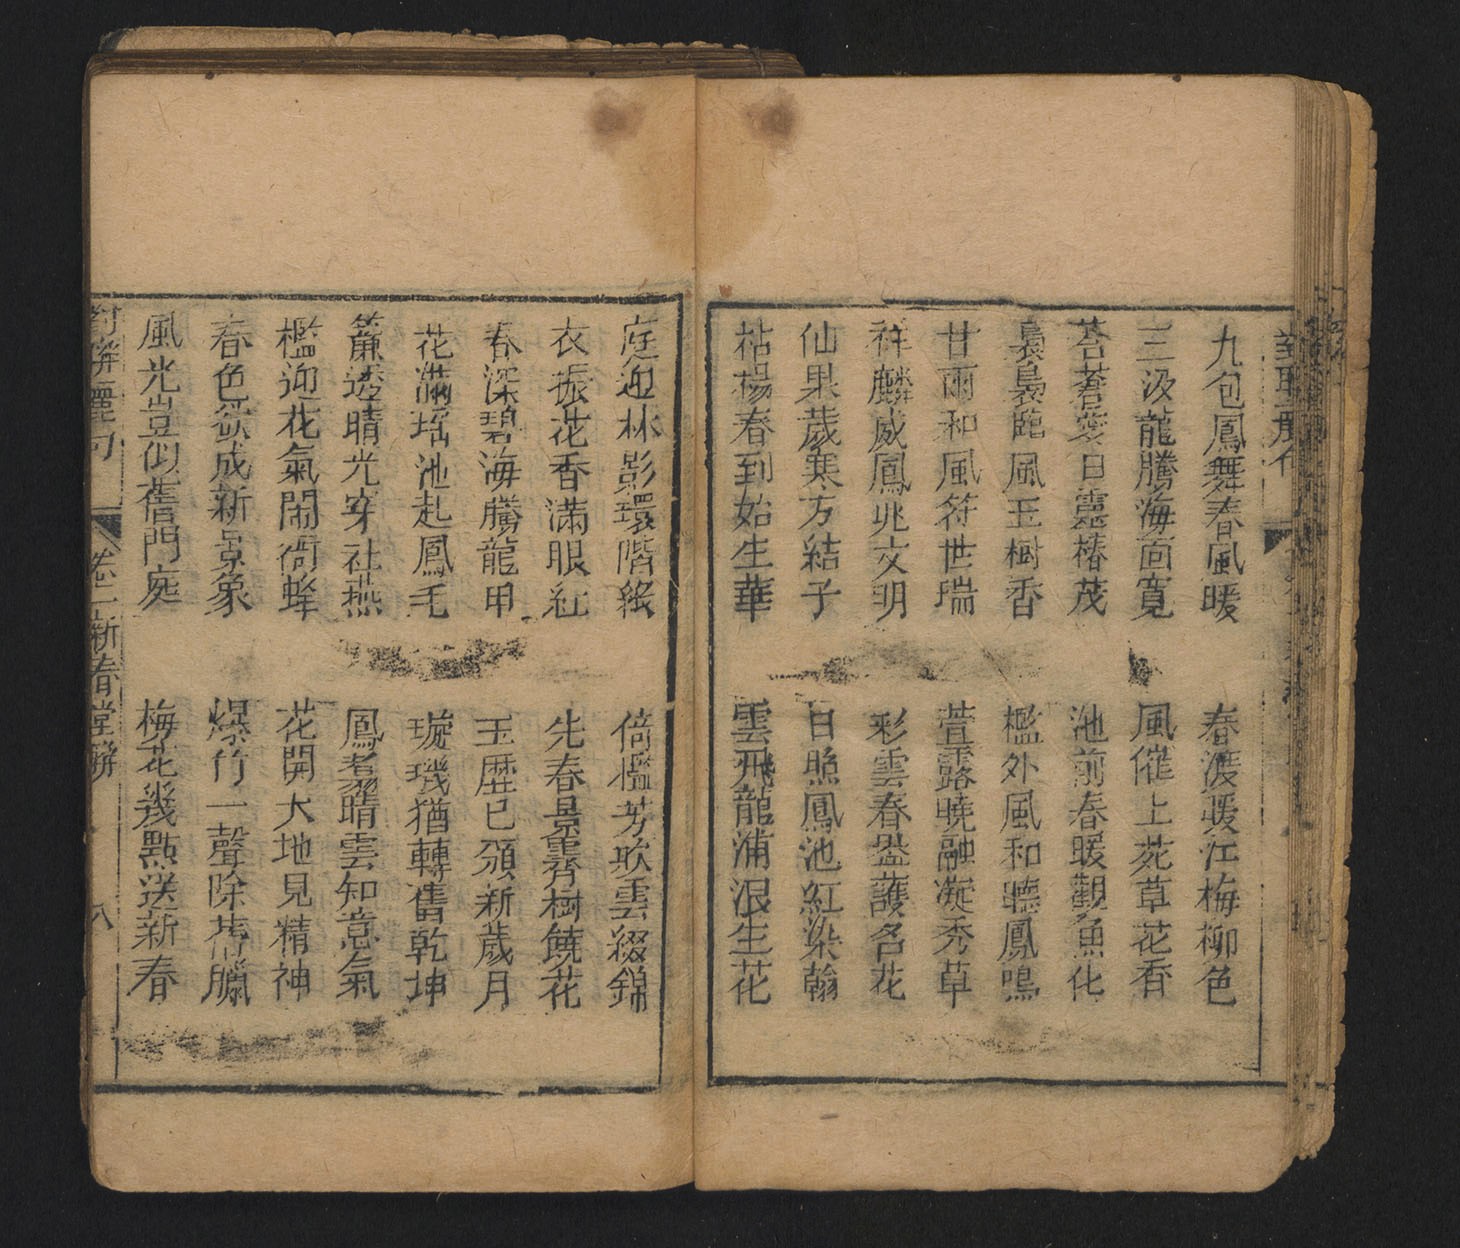 九包鳳舞春風暖
春渡暖江梅柳色
三汲龍騰海面寬
風催上苑草花香
蒼蒼日靈椿茂
池前春暖觀魚化
裊裊臨風玉樹香
檻外風和聽鳳鳴
甘雨和風符世瑞
萱露曉融凝秀草
祥麟威鳳兆文明
彩雲春煖護名花
仙果歲寒方結子
日照鳳池紅染翰
枯楊春到始生華
雲飛龍浦浪生花
庭迎林影環階綠
倚檻芳吹雲綴錦
衣振花香滿眼紅
先春景霽樹饒花
春深碧海騰龍甲
玉歷已頒新歲月
花滿瑤池起鳳毛
璇璣猶轉舊乾坤
簾透晴光穿社燕
鳳翥晴雲知意氣
檻迎花氣鬧衙蜂
花開大地見精神
春色欲成新景象
爆竹一聲除舊臘
風光豈似舊門庭
梅花幾點送新春
對聯麗句 卷二 新春堂聯 八